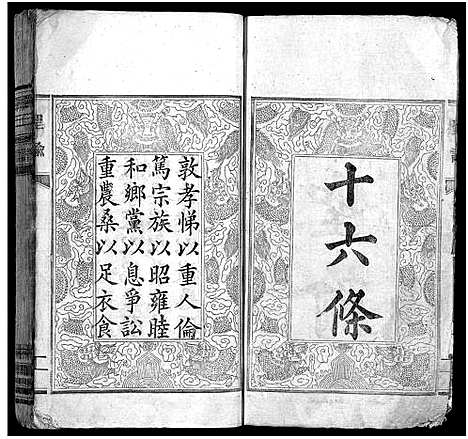 十六條
敦孝悌以重人倫
篤宗族以昭雍睦
和鄉黨以息爭訟
重農桑以足衣食